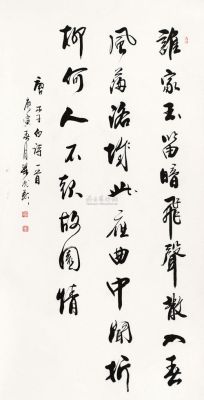 誰家玉笛暗飛聲散入春
風滿洛城此夜曲中聞折
柳何人不起故園情
唐李太白詩一首
庚寅春月